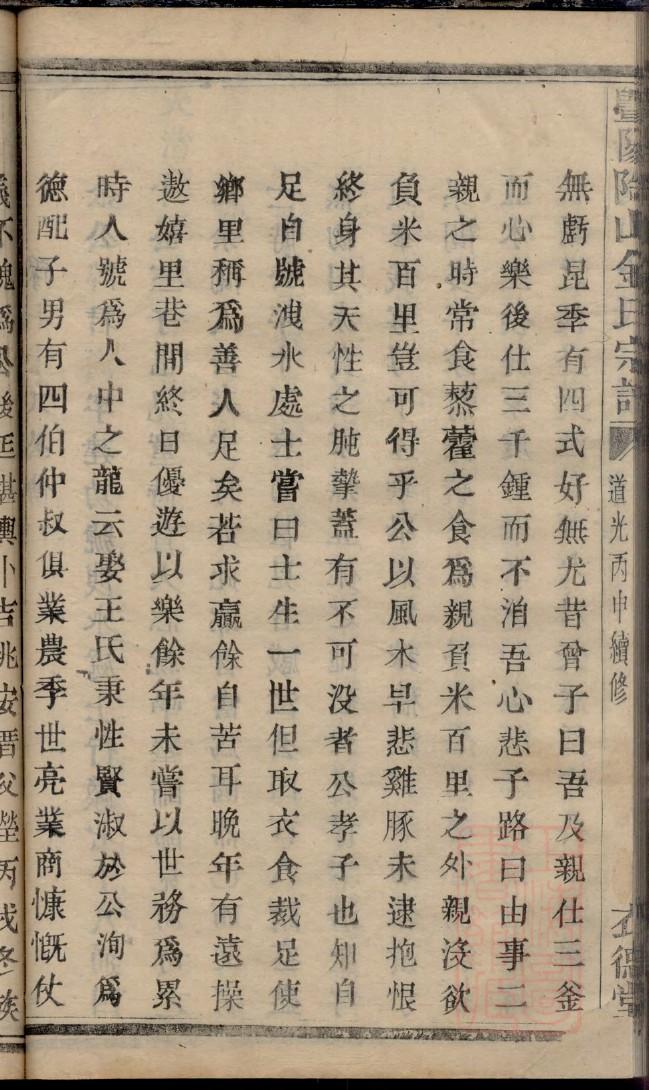 暨陽陶山金氏宗譜 道光丙申續修
無虧昆季有四式好無尤昔曾子曰吾及親仕三釜
而心樂後仕三千鍾而不洎吾心悲子路曰由事二
親之時常食藜藿之食爲親負米百里之外親沒欲
負米百里豈可得乎公以風木早悲雞豚未逮抱恨
終身其天性之肫摯蓋有不可没者公孝子也知自
足自號洩水處士嘗曰士生一世但取衣食裁足使
鄉里稱爲善人足矣若求贏餘自苦耳晚年有遠操
遨嬉里巷間終日優遊以樂餘年未嘗以世務爲累
時人號爲人中之龍云娶王氏秉性賢淑於公洵爲
德配子男有四伯仲叔俱業農季世亮業商慷慨仗